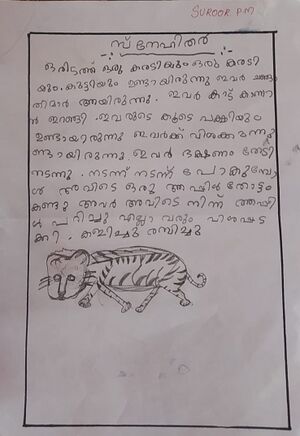 SUROOR P.M
സ്നേഹിതർ
ഒരിടത്ത് ഒരു കരടിയും ഒരു കരടി
യും കുട്ടിയും ഉണ്ടായിരുന്നു ഇവർ
തിമാർ ആയിരുന്നു. ഇവർ കാട് കാണാ
ൻ ഇറങ്ങി. ഇവരുടെ കൂടെ പക്ഷിയും
ഉണ്ടായിരുന്നു ഇവർക്ക് വിശക്കുന്നു
ണ്ടായിരുന്നു. ഇവർ ഭക്ഷണം തേടി
നടന്നു. നടന്ന് നടന്ന് പോകുമ്പോ
ൾ അവിടെ ഒരു ആപ്പിൾ തോട്ടം
കണ്ടു അവർ അവിടെ നിന്ന് ആപ്പി
ൾ പറിച്ചു എല്ലാ വരും വിശപ്പട
ക്കി. കളിച്ചു രസിച്ചു